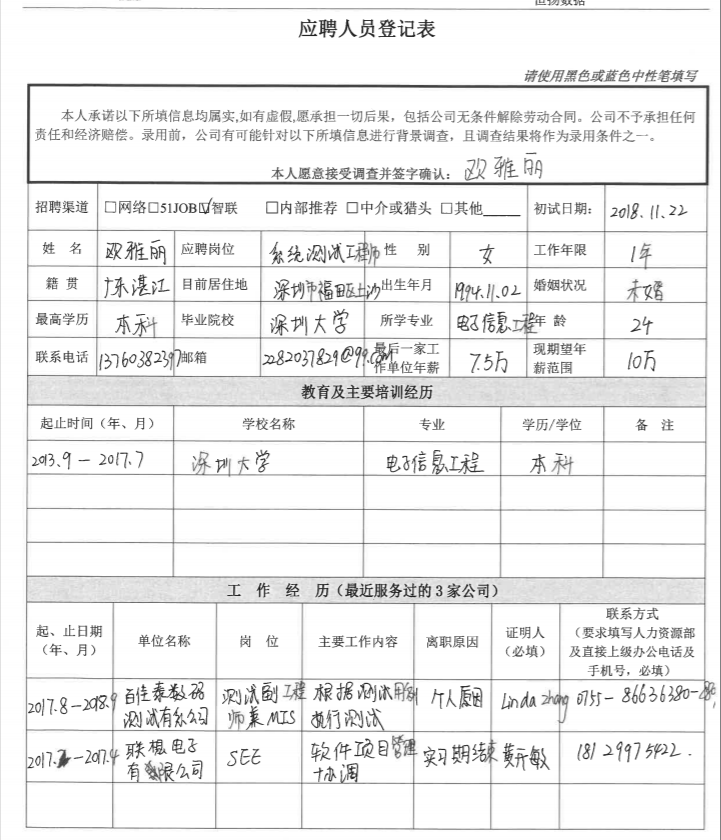 应聘人员登记表
请使用黑色或蓝色中性笔填写
本人承诺以下所填信息均属实,如有虚假,愿承担一切后果，包括公司无条件解除劳动合同。公司不予承担任何
责任和经济赔偿。录用前，公司有可能针对以下所填信息进行背景调查，且调查结果将作为录用条件之一。
本人愿意接受调查并签字确认： 欧雅丽
招聘渠道 □网络□51JOB☑智联 □内部推荐 □中介或猎头 □其他_____ 初试日期： 2018.11.22
姓 名 欧雅丽 应聘岗位 系统测试工程师 性 别 女 工作年限 1年
籍 贯 广东湛江 目前居住地 深圳市福田区上沙 出生年月 1994.11.02 婚姻状况 未婚
最高学历 本科 毕业院校 深圳大学 所学专业 电子信息工程 年 龄 24
联系电话 13760382397 邮箱 2282037829@qq.com 最后一家工作单位年薪 7.5万 现期望年薪范围 10万
教育及主要培训经历
起止时间（年、月） 学校名称 专业 学历/学位 备 注
2013.9 — 2017.7 深圳大学 电子信息工程 本科
工 作 经 历（最近服务过的3家公司）
起、止日期（年、月） 单位名称 岗 位 主要工作内容 离职原因 证明人（必填） 联系方式（要求填写人力资源部及直接上级办公电话及手机号，必填）
2017.8-2018.9 百佳泰数码测试有限公司 测试副工程师兼MIS 根据测试用例执行测试 个人原因 Linda zhang 0755-86636380-
-2017.4 联想电子有限公司 SEE 软件项目管理协调 实习期结束 黄元敏 18129975422.